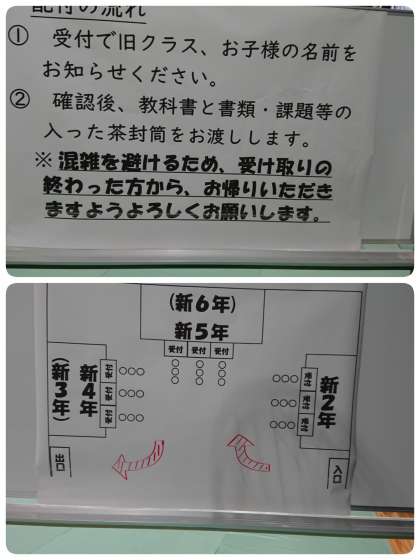 配付の流れ
① 受付で旧クラス、お子様の名前を
お知らせください。
② 確認後、教科書と書類・課題等の
入った茶封筒をお渡しします。
※ 混雑を避けるため、受け取りの
終わった方から、お帰りいただき
ますようよろしくお願いします。
(新6年)
新5年
受付 受付 受付
新4年
(新3年)
受付
受付
受付
新2年
受付
受付
受付
出口
入口